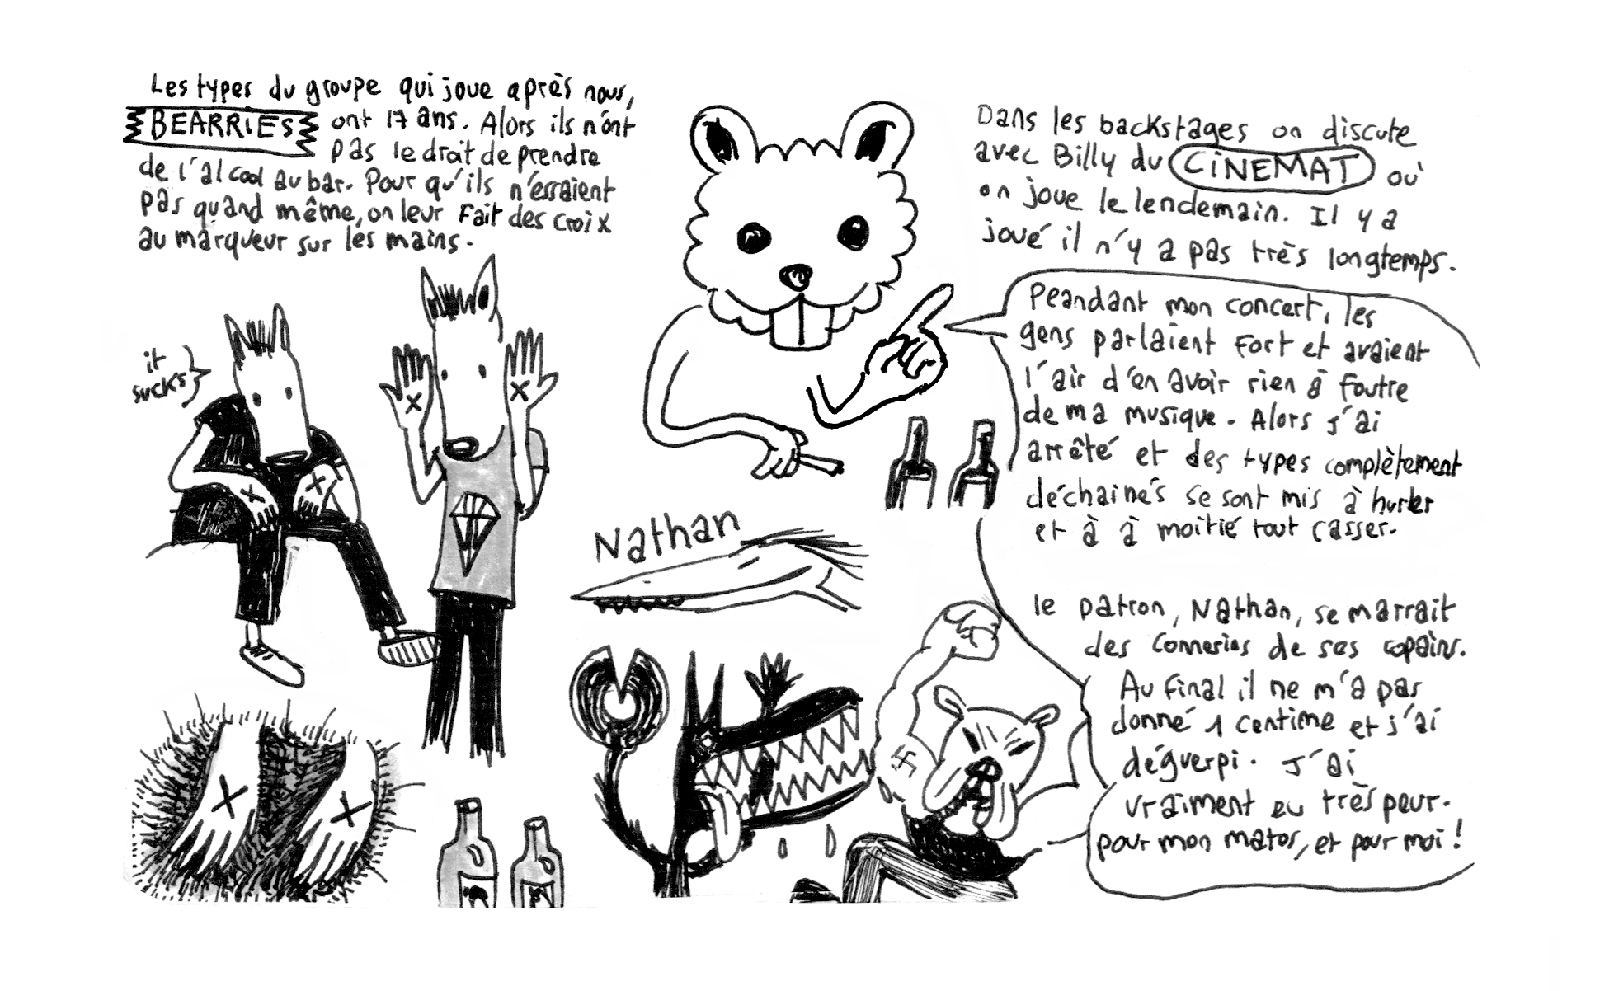 Les types du groupe qui joue après nous,
BEARRIES ont 17 ans. Alors ils n'ont
pas le droit de prendre
de l'alcool au bar. Pour qu'ils n'essaient
pas quand même, on leur Fait des croix
au marqueur sur les mains.
it
sucks
Dans les backstages on discute
avec Billy du CiNEMAT où
on joue le lendemain. Il y a
joué il n'y a pas très longtemps.
Peandant mon concert, les
gens parlaient Fort et avaient
l'air d'en avoir rien à Foutre
de ma musique. Alors j'ai
arrêté et des types complètement
déchainés se sont mis à hurler
et à à moitié tout casser.
Nathan
le patron, Nathan, se marrait
des conneries de ses copains.
Au Final il ne m'a pas
donné 1 centime et j'ai
déguerpi. J'ai
vraiment eu très peur.
pour mon matos, et pour moi !